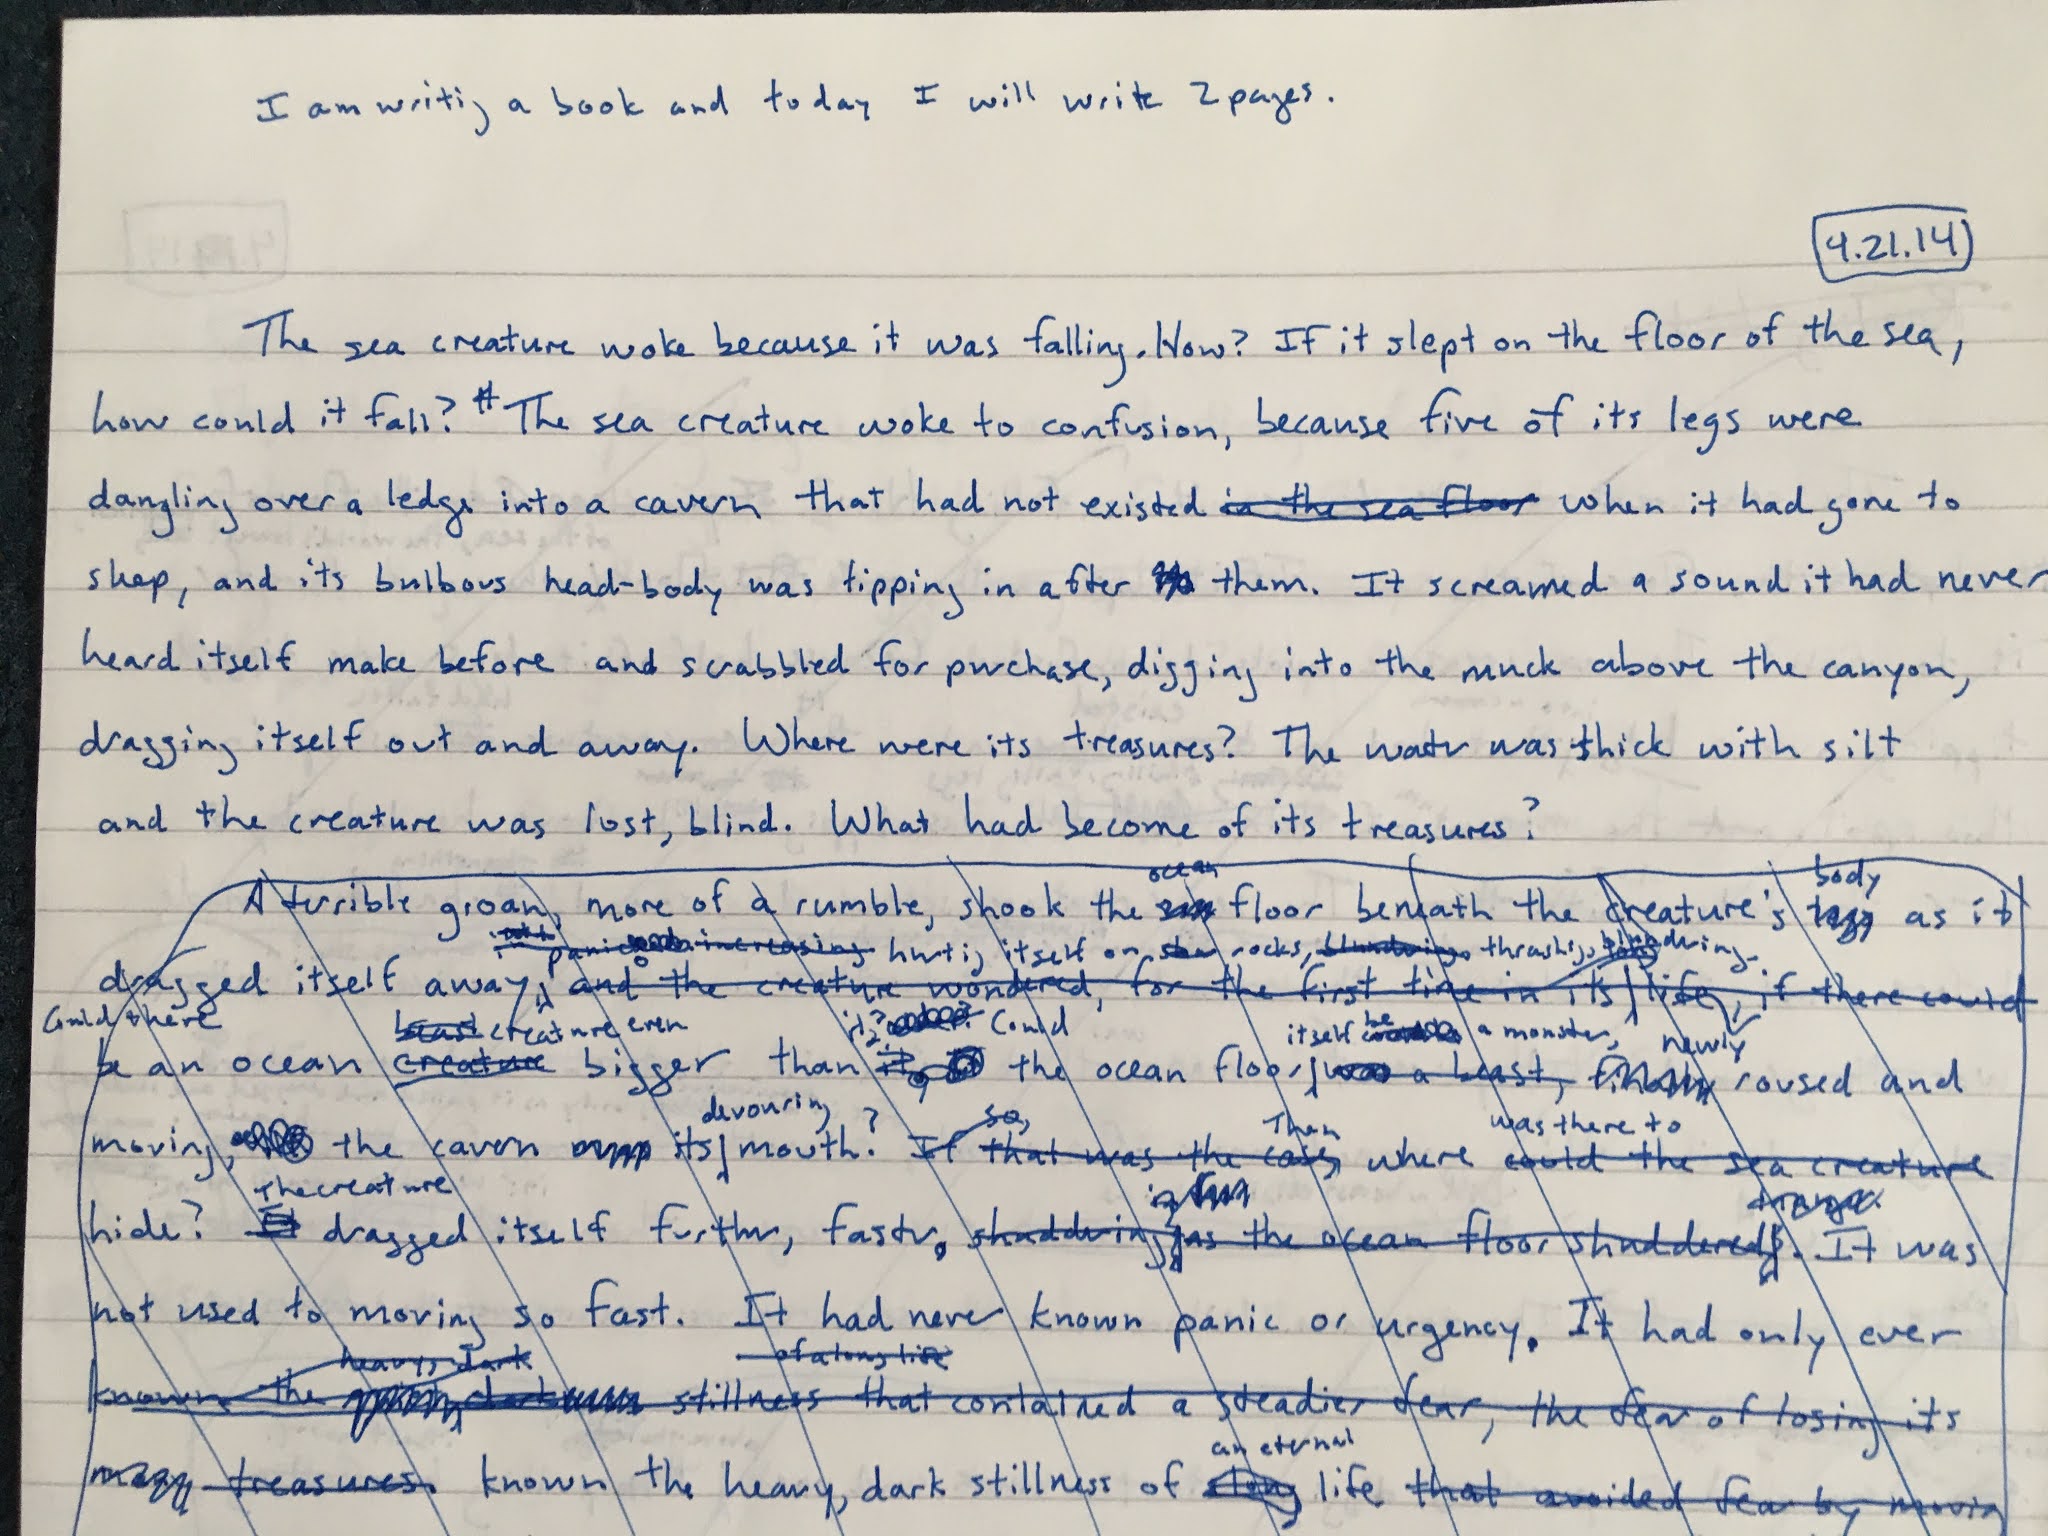 I am writing a book and today I will write 2 pages.
4.21.14
The sea creature woke because it was falling. How? If it slept on the floor of the sea,
how could it fall? # The sea creature woke to confusion, because five of its legs were
dangling over a ledge into a cavern that had not existed in the sea floor when it had gone to
sleep, and its bulbous head-body was tipping in after them. It screamed a sound it had never
heard itself make before and scrabbled for purchase, digging into the muck above the canyon,
dragging itself out and away. Where were its treasures? The water was thick with silt
and the creature was lost, blind. What had become of its treasures?
ocean body
A terrible groan, more of a rumble, shook the floor beneath the creature's legs as it
increasing hurting itself on rocks, thrashing, blundering
dragged itself away, and the creature wondered, for the first time in its life, if there could
Could there beast creature even it? Could itself be a monster, newly
be an ocean creature bigger than it, the ocean floor was a beast, finally roused and
devouring so, Then was there to
moving, the cavern its mouth? If that was the case, where could the sea creature
The creature
hide? It dragged itself further, faster, shuddering as the ocean floor shuddered. It was
not used to moving so fast. It had never known panic or urgency. It had only ever
heavy, dark of a long life
known the dark stillness that contained a steadier fear, the fear of losing its
an eternal
treasures. known the heavy, dark stillness of a long life that avoided fear by moving